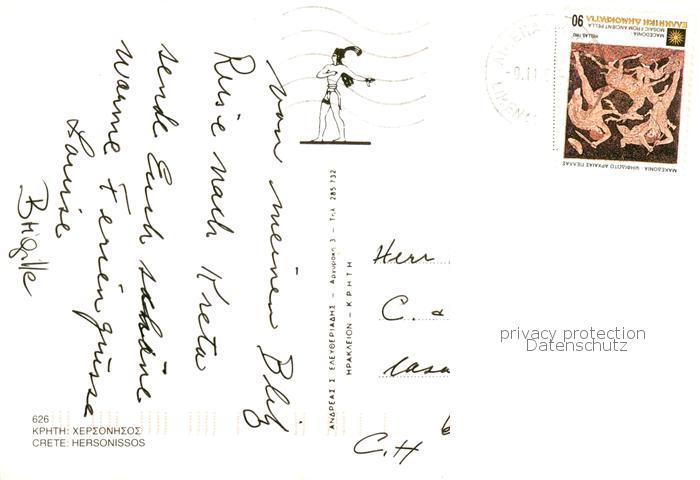 von meinen Blitz
Reise nach Kreta
sende Euch schöne
warme Feriengrüsse
Louise
Brigitte
626
ΚΡΗΤΗ: ΧΕΡΣΟΝΗΣΟΣ
CRETE: HERSONISSOS
ΑΝΔΡΕΑΣ Σ. ΕΛΕΥΘΕΡΙΑΔΗΣ - Αργυράκη 3 - Τηλ. 285 732
ΗΡΑΚΛΕΙΟΝ - ΚΡΗΤΗ
Herr
C. a
Casa
C.H
90
ΕΛΛΗΝΙΚΗ ΔΗΜΟΚΡΑΤΙΑ
MACEDONIA
MOSAIC FROM ANCIENT PELLA
HELLAS 1992
ΜΑΚΕΔΟΝΙΑ - ΨΗΦΙΔΩΤΟ ΑΡΧΑΙΑΣ ΠΕΛΛΑΣ
privacy protection
Datenschutz